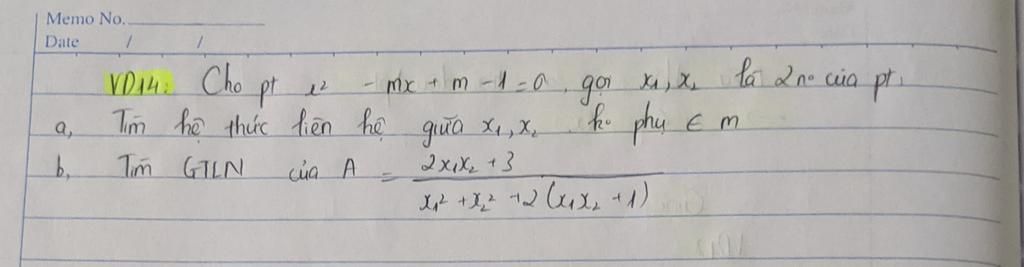 Memo No.
Date / /
VD14: Cho pt x² - mx + m - 1 = 0, gọi x₁, x₂ là 2 n₀ của pt.
a, Tìm hệ thức liên hệ giữa x₁, x₂ ko phụ ∈ m
b, Tìm GTLN của A = (2x₁x₂ + 3) / (x₁² + x₂² + 2(x₁x₂ + 1))